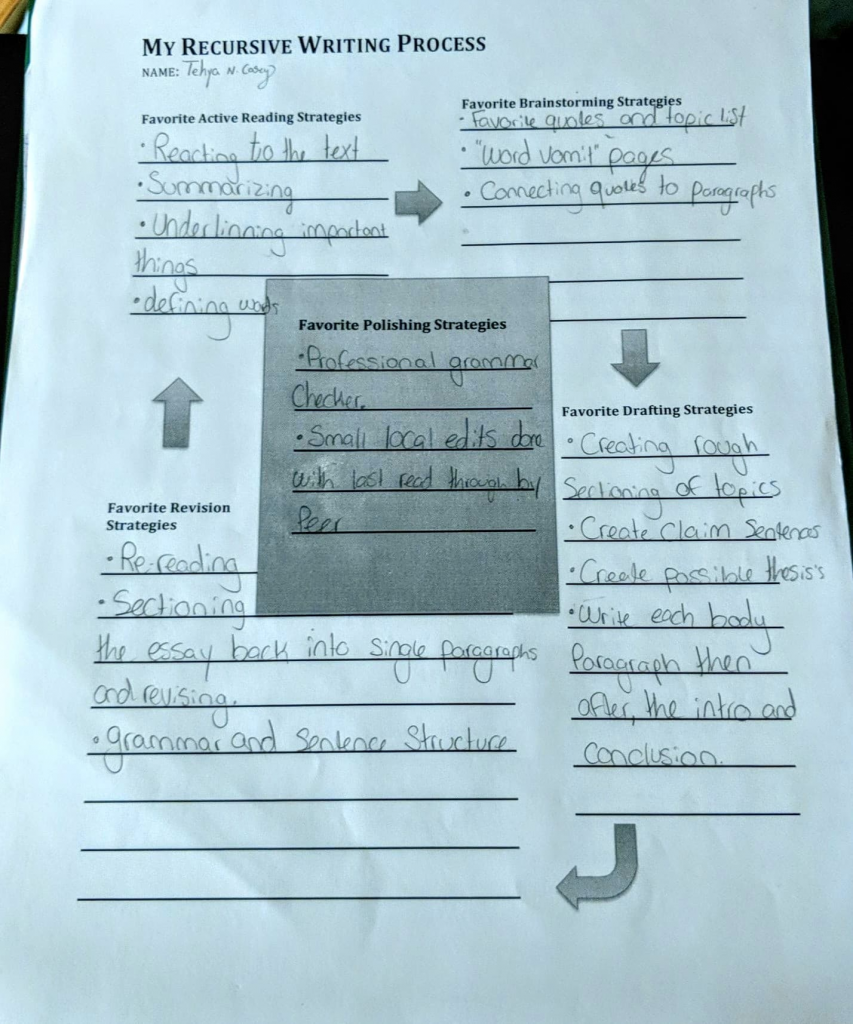 MY RECURSIVE WRITING PROCESS
NAME: Tehya N. Casey
Favorite Active Reading Strategies
• Reacting to the text
• Summarizing
• Underlinning important
things
• defining words
Favorite Brainstorming Strategies
• Favorite quotes and topic list
• "Word vomit" pages
• Connecting quotes to Paragraphs
Favorite Polishing Strategies
• Professional grammar
Checker.
• Small local edits done
with last read through by
Peer
Favorite Drafting Strategies
• Creating rough
Sectioning of topics
• Create Claim Sentences
• Create possible thesis's
• Write each body
Paragraph then
after, the intro and
Conclusion.
Favorite Revision
Strategies
• Re-reading
• Sectioning
the essay back into single paragraphs
and revising.
• grammar and Sentence Structure